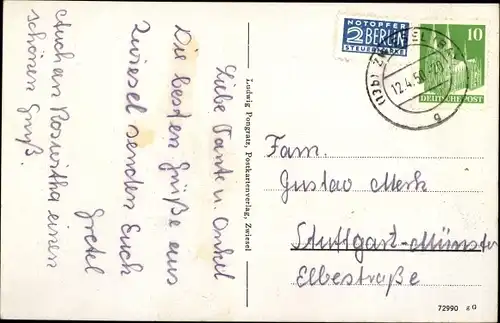 Liebe Tante u. Onkel
Die besten Grüße aus
Zwiesel senden Euch
Gretel
Auch an Roswitha einen
schönen Gruß.
Ludwig Pongratz, Postkartenverlag, Zwiesel
NOTOPFER
2 BERLIN
STEUERMARKE
10
DEUTSCHE POST
(13b) ZWIESEL (BAY
12.4.50.
g
Fam.
Gustav Merk
Stuttgart-Münster
Elbestraße
72990